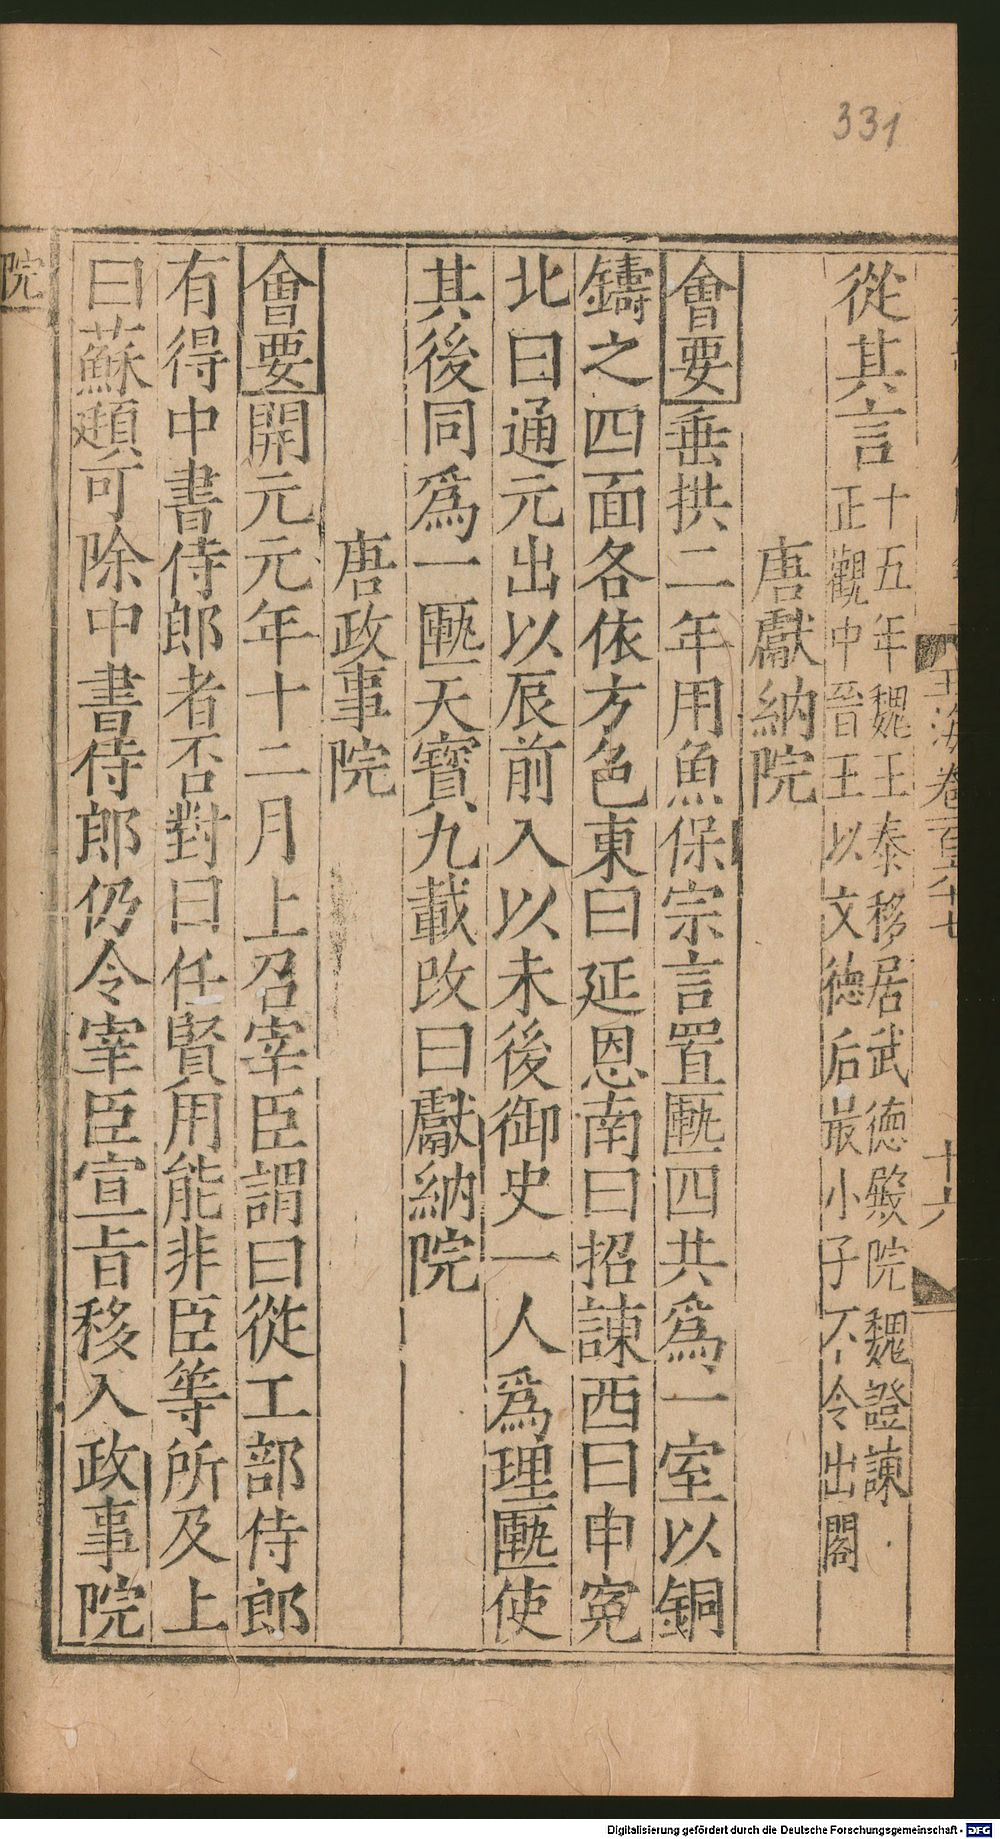 331
玉海卷百六十七
十六
從其言十五年魏王泰移居武德殿院魏證諫
正觀中晉王以文德后最小子不令出閣
唐獻納院
會要垂拱二年用魚保宗言置匭四共爲一室以銅
鑄之四面各依方色東曰延恩南曰招諫西曰申冤
北曰通元出以辰前入以未後御史一人爲理匭使
其後同爲一匭天寶九載改曰獻納院
唐政事院
會要開元元年十二月上召宰臣謂曰從工部侍郎
有得中書侍郎者否對曰任賢用能非臣等所及上
曰蘇頲可除中書侍郎仍令宰臣宣旨移入政事院
院
Digitalisierung gefördert durch die Deutsche Forschungsgemeinschaft - DFG